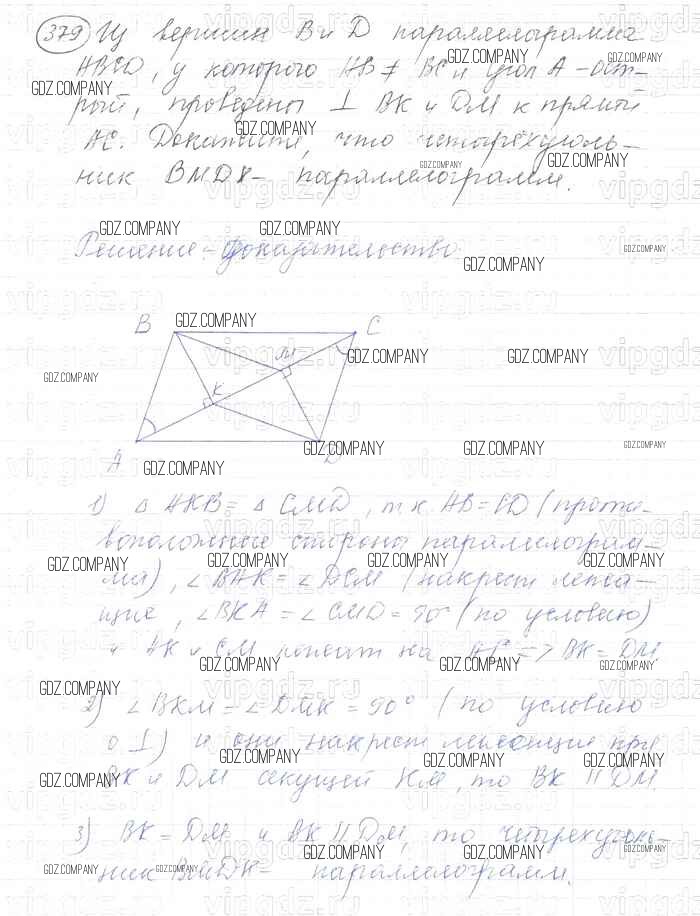 379 Из вершин В и D параллелограмма
ABCD, у которого AB ≠ BC и угол А - ост-
рый, проведены ⊥ BK и DM к прямой
AC. Докажите, что четырёхуголь-
ник BMDK - параллелограмм.
Решение - доказательство
B C
M
K
A D
1) Δ AKB = Δ CMD, т к AB = CD (проти-
воположные стороны параллелограм-
ма), ∠ BAK = ∠ DCM (накрест лежа-
щие, ∠ BKA = ∠ CMD = 90° (по условию)
и AK и CM лежит на AC => BK = DM.
2) ∠ BKM = ∠ DMK = 90° (по условию
о ⊥) и они накрест лежащие при
BK и DM секущей KM, то BK || DM
3) BK = DM и BK || DM, то четырехуголь-
ник BMDK - параллелограмм.
GDZ.COMPANY
vipgdz.ru